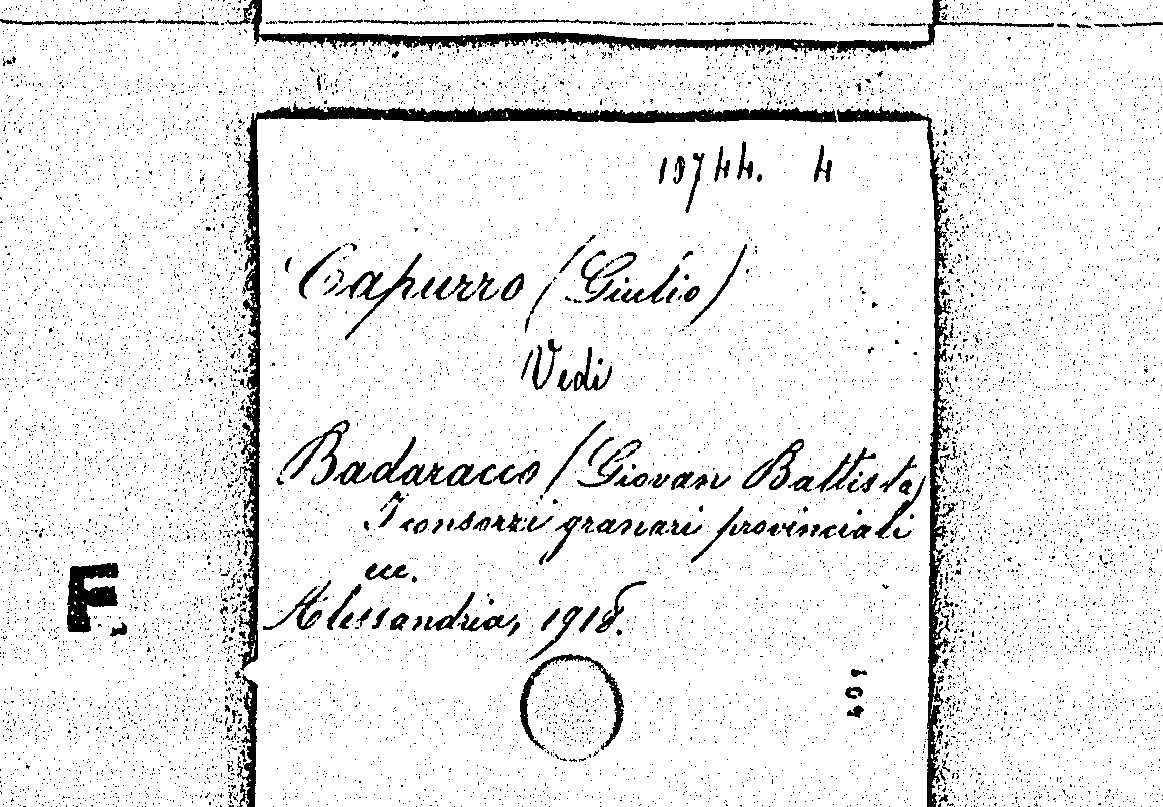 10744. 4
Capurro (Giulio)
Vedi
Badaracco (Giovan Battista)
I consorzi granari provinciali
ecc.
Alessandria, 1918.
F.
401